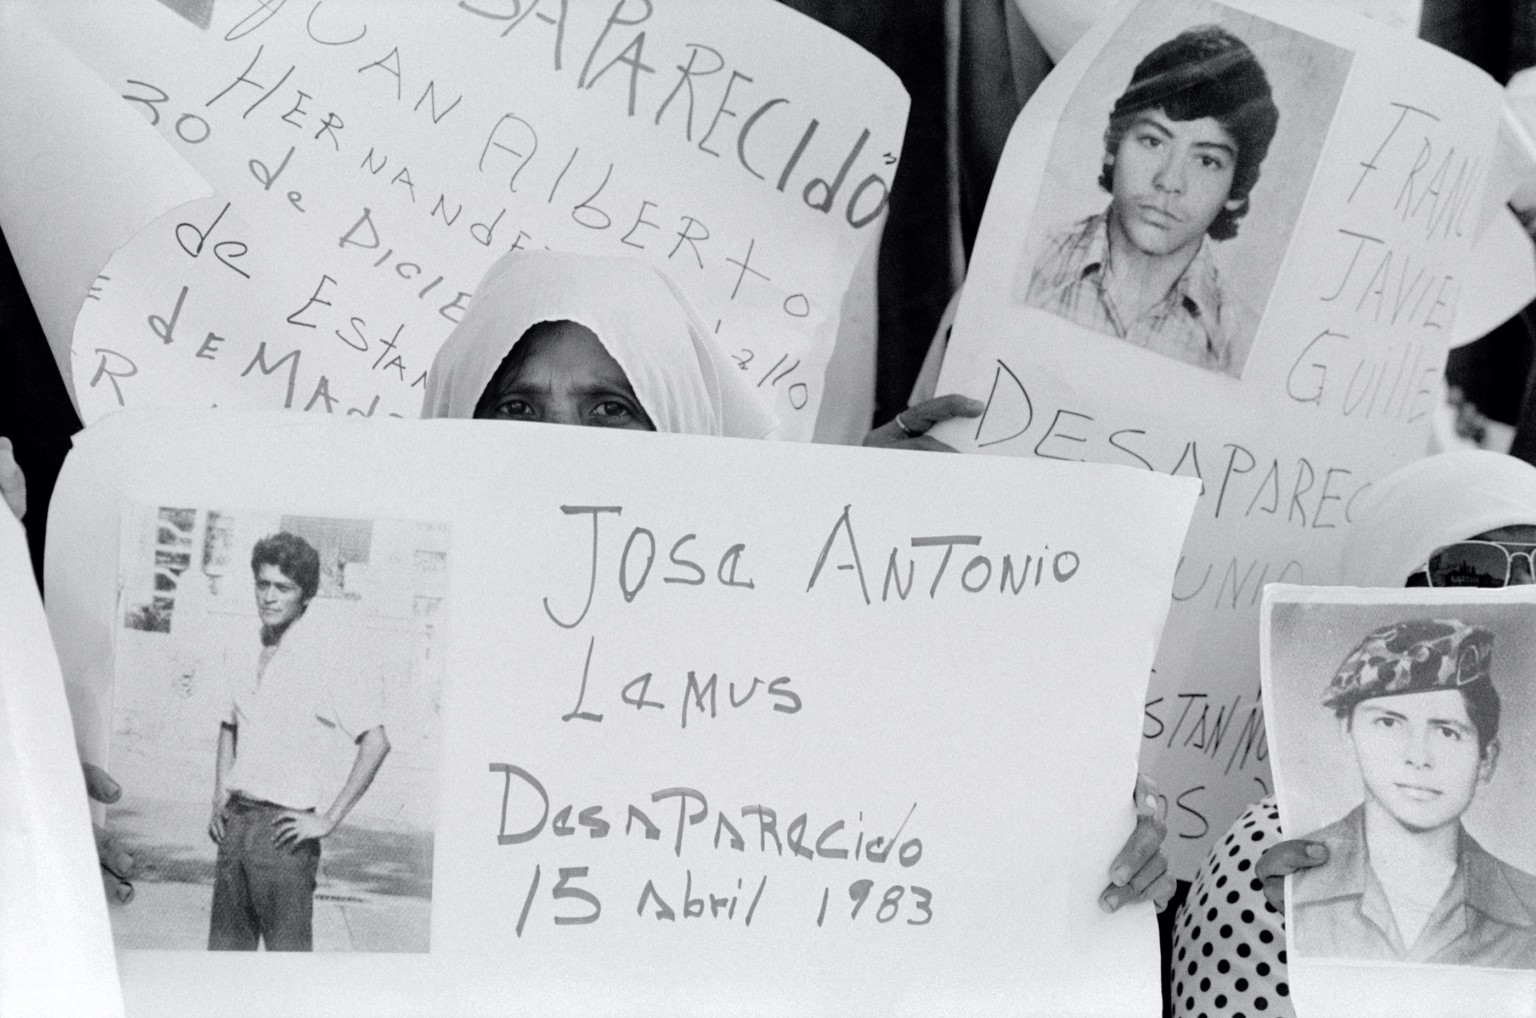 JUAN AlbERto
HERNANDE
30 de DICIE
de Estan
dE MAd
R
FRAN
JAVIE
Guille
DESAPAREC
UNIO
STAN
OS
JOSE ANTONIO
LAMUS
DESAPARECIDO
15 Abril 1983